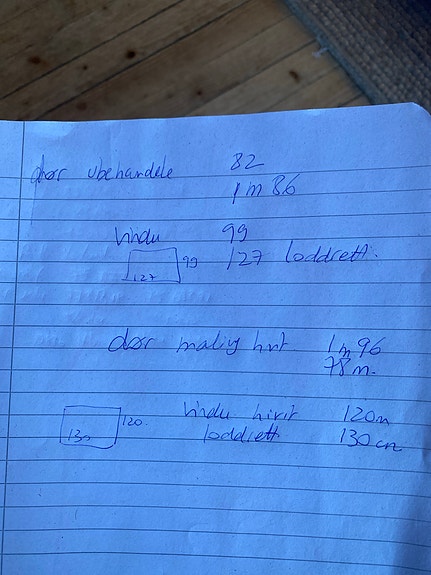 dør ubehandele 82
1 m 86
Vindu 99
99 127 loddrett.
127
dør maling hvit 1 m 96
78 m.
120. Vindu hivit 120 m
130 loddrett 130 cm